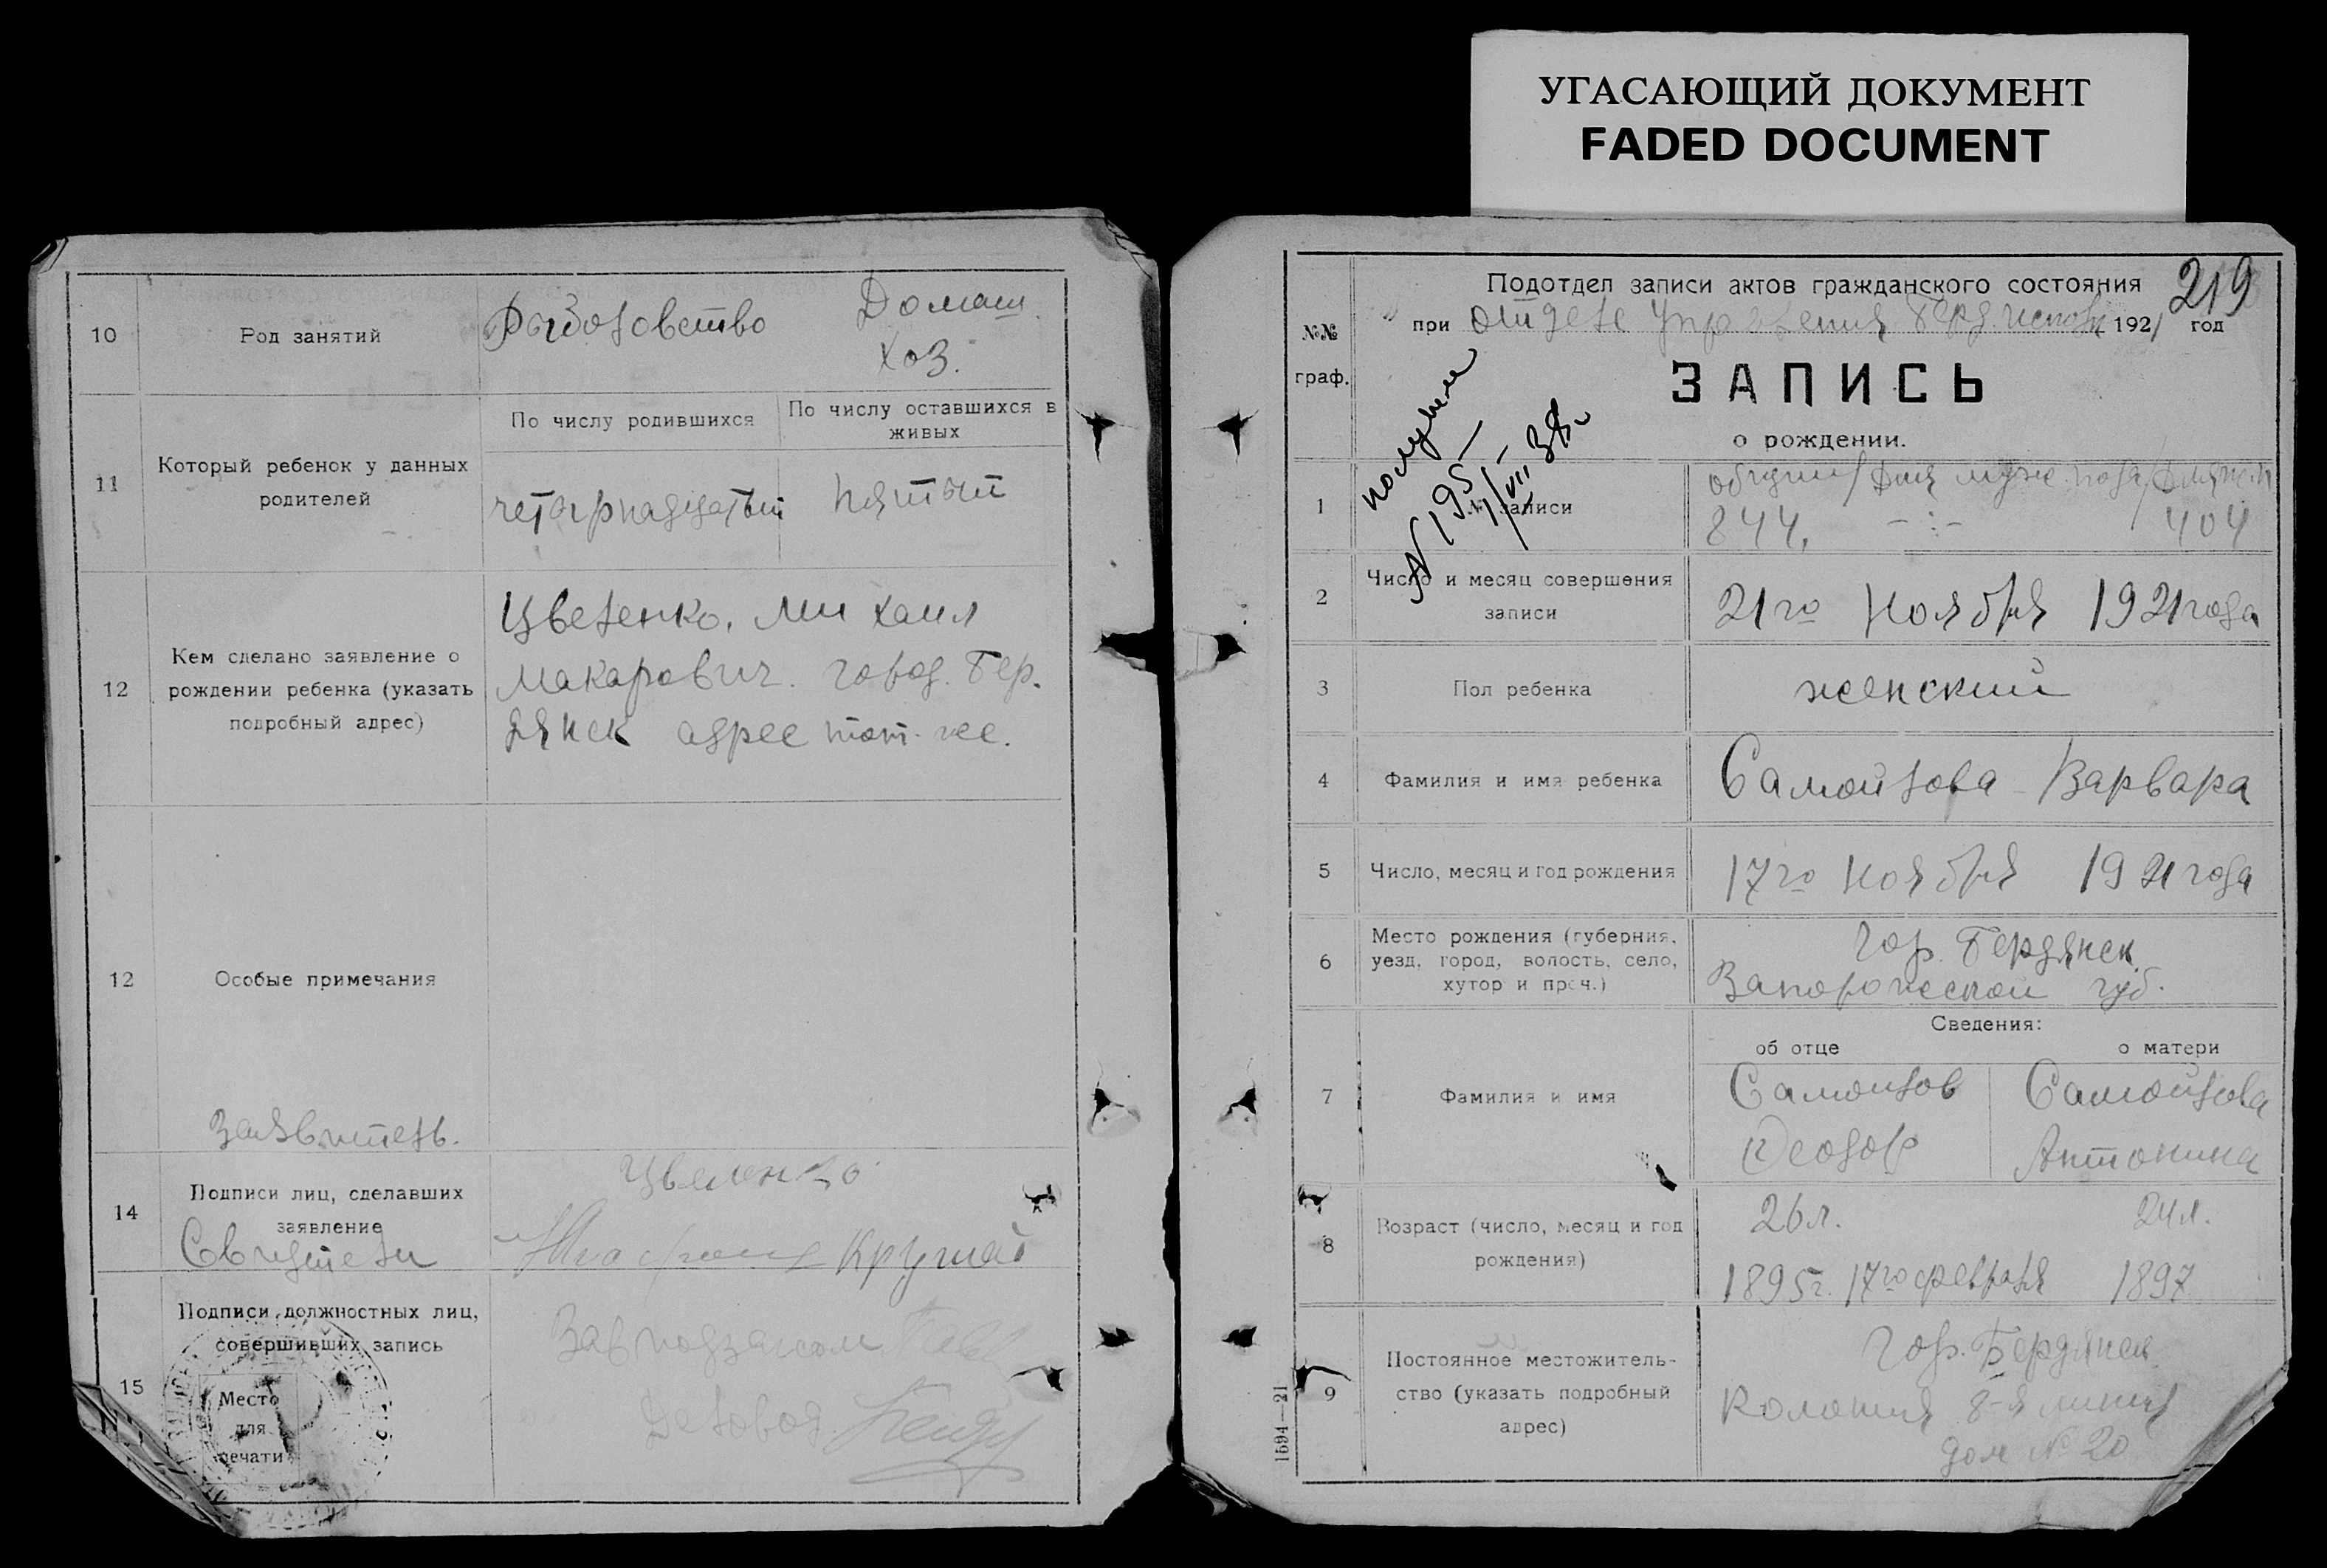 УГАСАЮЩИЙ ДОКУМЕНТ
FADED DOCUMENT
10
Род занятий
Рыболовство
Домаш.
хоз.
11
Который ребенок у данных
родителей
По числу родившихся
По числу оставшихся в
живых
пятый
12
Кем сделано заявление о
рождении ребенка (указать
подробный адрес)
Цветенко, Михаил
Макарович. город. Бер.
дянск адрес тот-же.
12
Особые примечания
Заявитель.
14
Подписи лиц, сделавших
заявление
Свидетели
15
Подписи должностных лиц,
совершивших запись
Место
для
печати
219
№№
граф.
Подотдел записи актов гражданского состояния
при отделе Управления Берд. 1921 год
ЗАПИСЬ
о рождении.
№ 195
VII 38г
1
№ записи
общий / для муж. пола / для ж. п
844. -:- 404
2
Число и месяц совершения
записи
21го Ноября 1921 года
3
Пол ребенка
женский
4
Фамилия и имя ребенка
Самойлова Варвара
5
Число, месяц и год рождения
17го Ноября 1921 года
6
Место рождения (губерния,
уезд, город, волость, село,
хутор и проч.)
Гор. Бердянск
Запорожской губ.
Сведения:
об отце
о матери
7
Фамилия и имя
Самойлов
Феодор
Самойлова
Антонина
8
Возраст (число, месяц и год
рождения)
26 л.
1895г. 17го февраля
24 л.
1897
9
Постоянное местожитель-
ство (указать подробный
адрес)
Гор. Бердянск
Колония 8-я линия
дом № 20
1594—21